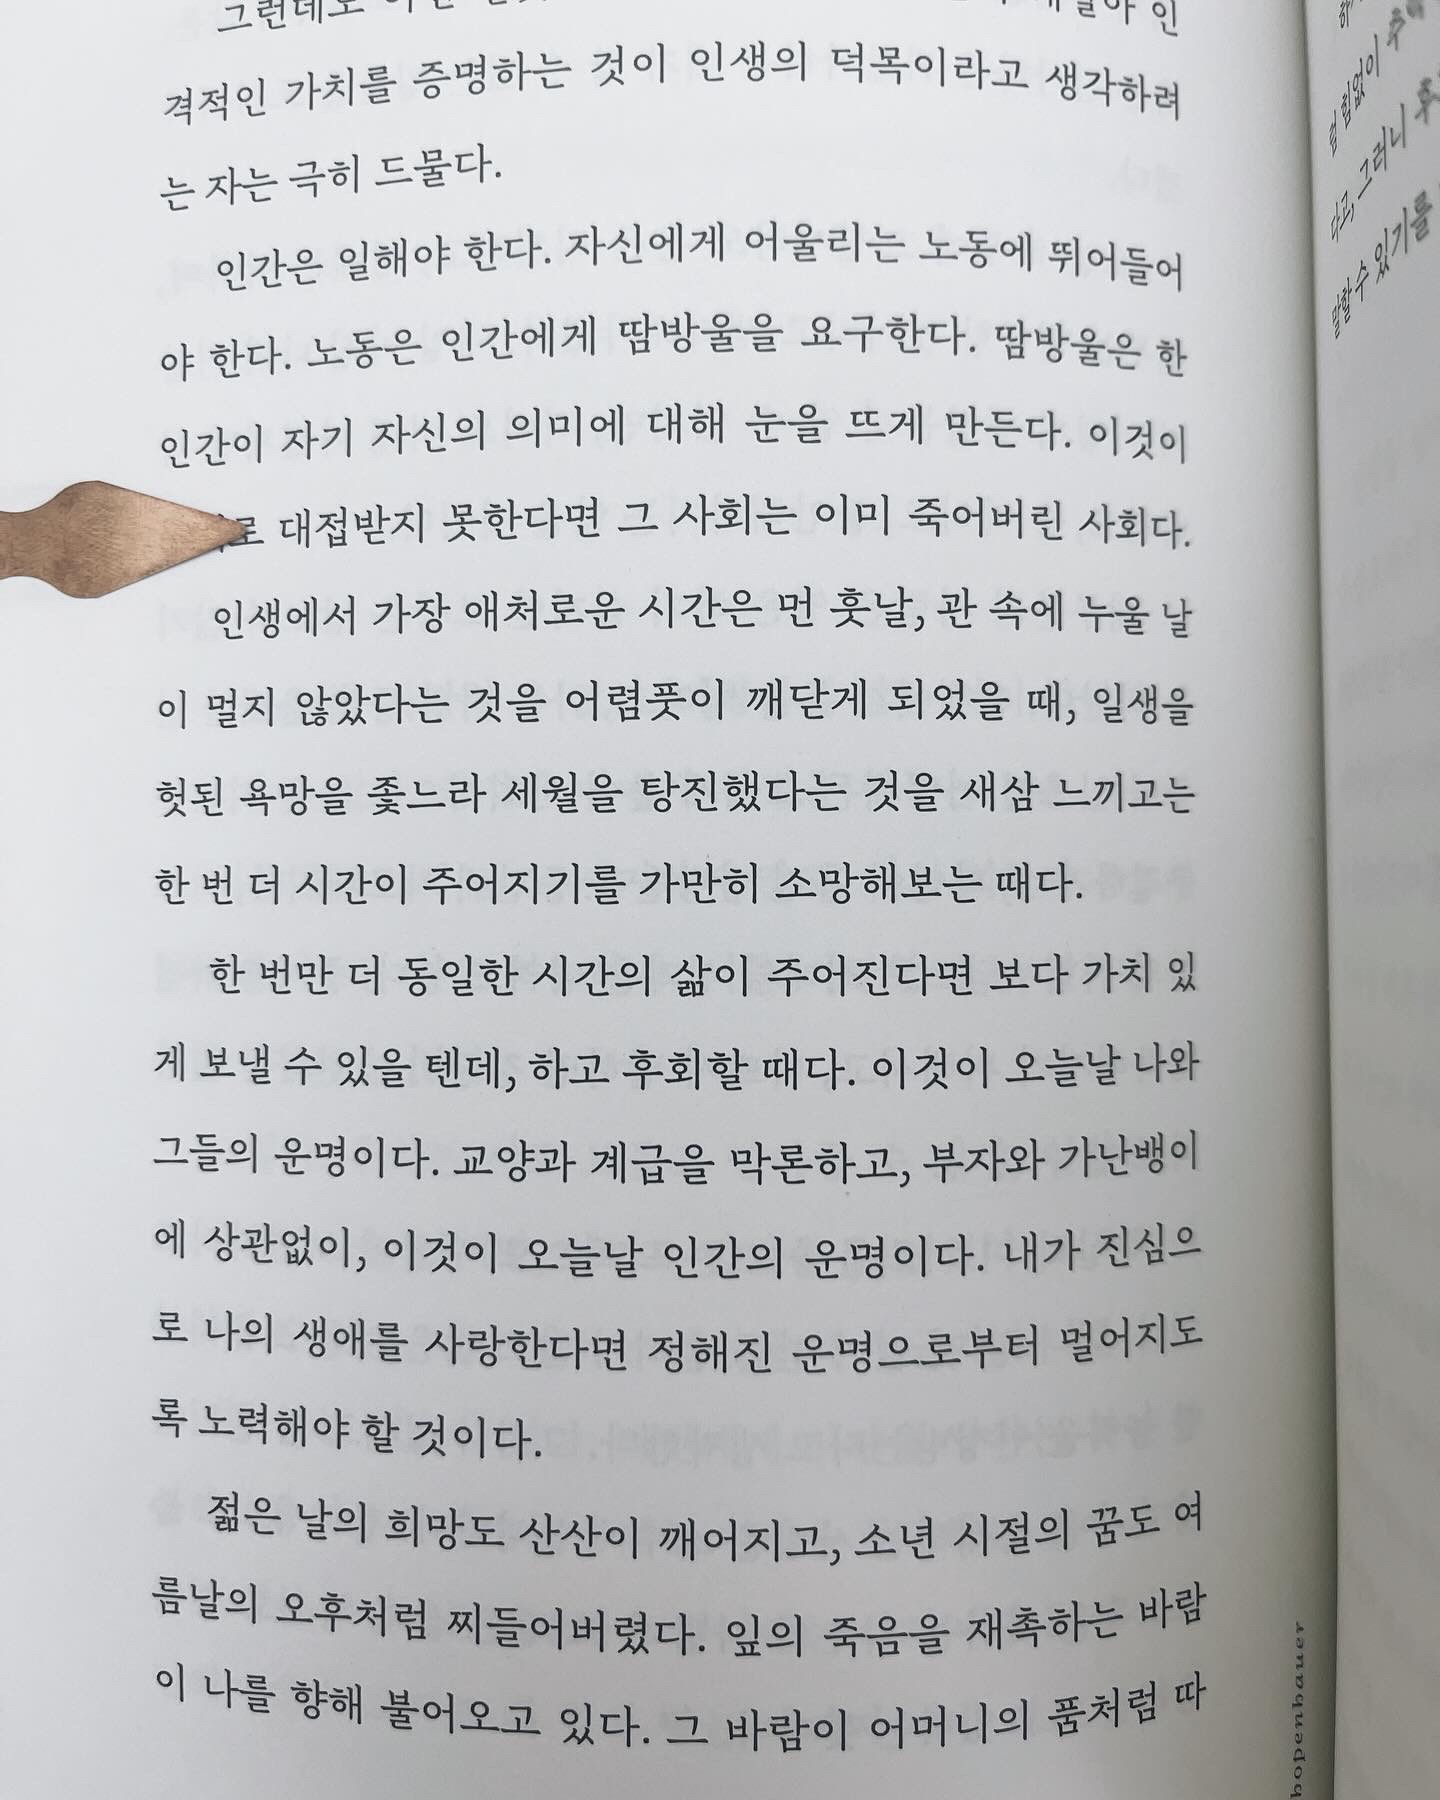 그런데도
격적인 가치를 증명하는 것이 인생의 덕목이라고 생각하려
는 자는 극히 드물다.
인간은 일해야 한다. 자신에게 어울리는 노동에 뛰어들어
야 한다. 노동은 인간에게 땀방울을 요구한다. 땀방울은 한
인간이 자기 자신의 의미에 대해 눈을 뜨게 만든다. 이것이
대접받지 못한다면 그 사회는 이미 죽어버린 사회다.
인생에서 가장 애처로운 시간은 먼 훗날, 관 속에 누울 날
이 멀지 않았다는 것을 어렴풋이 깨닫게 되었을 때, 일생을
헛된 욕망을 좇느라 세월을 탕진했다는 것을 새삼 느끼고는
한 번 더 시간이 주어지기를 가만히 소망해보는 때다.
한 번만 더 동일한 시간의 삶이 주어진다면 보다 가치 있
게 보낼 수 있을 텐데, 하고 후회할 때다. 이것이 오늘날 나와
그들의 운명이다. 교양과 계급을 막론하고, 부자와 가난뱅이
에 상관없이, 이것이 오늘날 인간의 운명이다. 내가 진심으
로 나의 생애를 사랑한다면 정해진 운명으로부터 멀어지도
록 노력해야 할 것이다.
젊은 날의 희망도 산산이 깨어지고, 소년 시절의 꿈도 여
름날의 오후처럼 찌들어버렸다. 잎의 죽음을 재촉하는 바람
이 나를 향해 불어오고 있다. 그 바람이 어머니의 품처럼 따
힘없이
다고, 그러니
말할 수 있기를